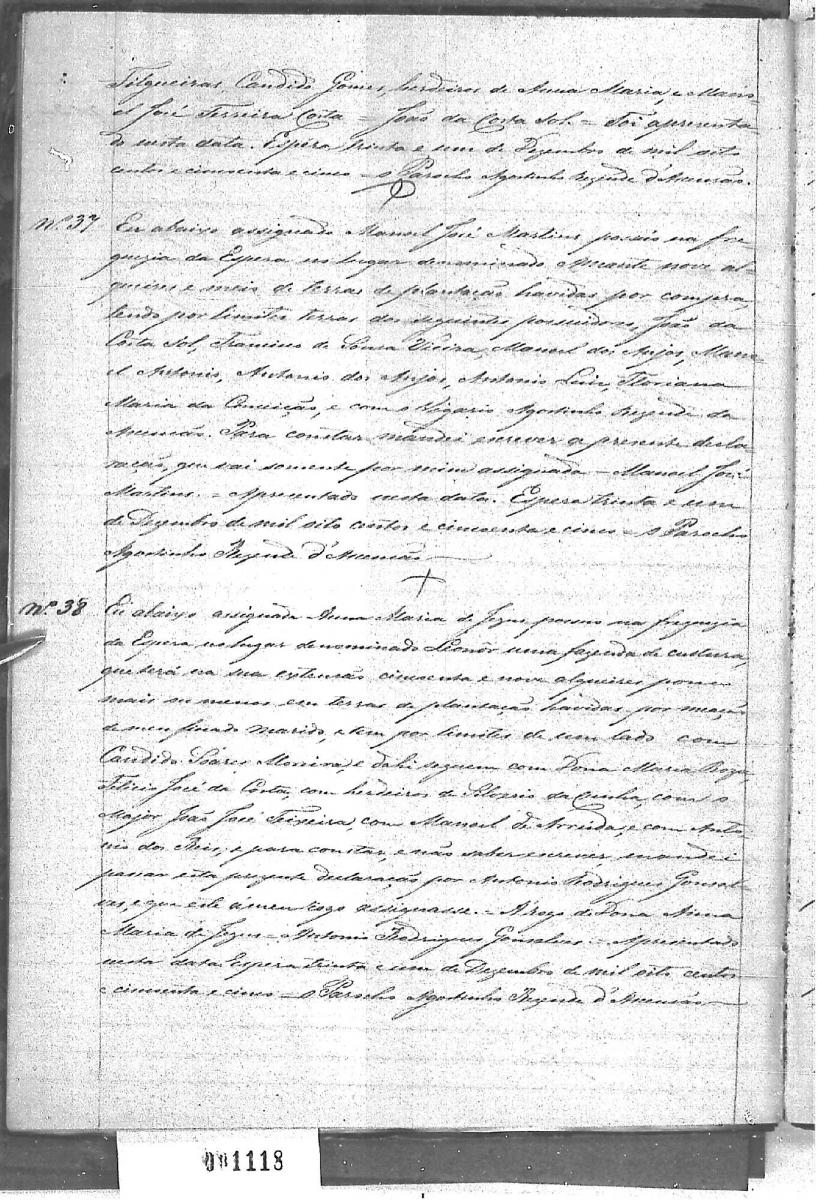 Filgueiras, Candido Gomes, herdeiros de Anna Maria, e Mano-
el José Ferreira Costa = João da Costa Sol. = Foi apresenta-
do nesta data. Espera trinta e um de Dezembro de mil oito
centos e cincoenta e cinco = o Parocho Agostinho Rezende d'Ascensão.
Nº 37 Eu abaixo assignado Manoel José Martins possuo na fre-
guezia da Espera no lugar denominado nove al-
queires e meio de terras de plantação havidas por compra,
tendo por limites terras dos seguintes possuidores, João da
Costa Sol, Francisco de Souza Vieira, Manoel dos Anjos, Mano-
el Antonio, Antonio dos Anjos, Antonio Luiz, Floriana
Maria da Conceição, e com o Vigario Agostinho Rezende da
Ascensão. Para constar mandei escrever a presente decla-
ração, que vai somente por mim assignada = Manoel José
Martins. = Apresentado nesta data. Espera trinta e um
de Dezembro de mil oito centos e cincoenta e cinco = o Parocho
Agostinho Rezende d'Ascensão
Nº 38 Eu abaixo assignada Anna Maria de Jezus possuo na freguezia
da Espera no lugar denominado Leonôr uma fazenda de cultura,
que terá na sua extensão cincoenta e nove alqueires pouco
mais ou menos em terras de plantação havidas por meação
de meu finado marido, e tem por limites de um lado com
Candido Soares Moreira, e dahi seguem com Dona Maria Roza,
Felicio José da Costa, com herdeiros de da Cunha, com o
Major João José Teixeira, com Manoel de Arruda, e com Anto-
nio dos Reis, e para constar, e não saber escrever mandei
passar esta prezente declaração por Antonio Rodrigues Gonsal-
ves, e que este a meu rogo assignasse. = A rogo de Dona Anna
Maria de Jezus = Antonio Rodrigues Gonsalves = Apresentado
nesta data. Espera trinta e um de Dezembro de mil oito centos
e cincoenta e cinco = o Parocho Agostinho Rezende d'Ascensão
001118